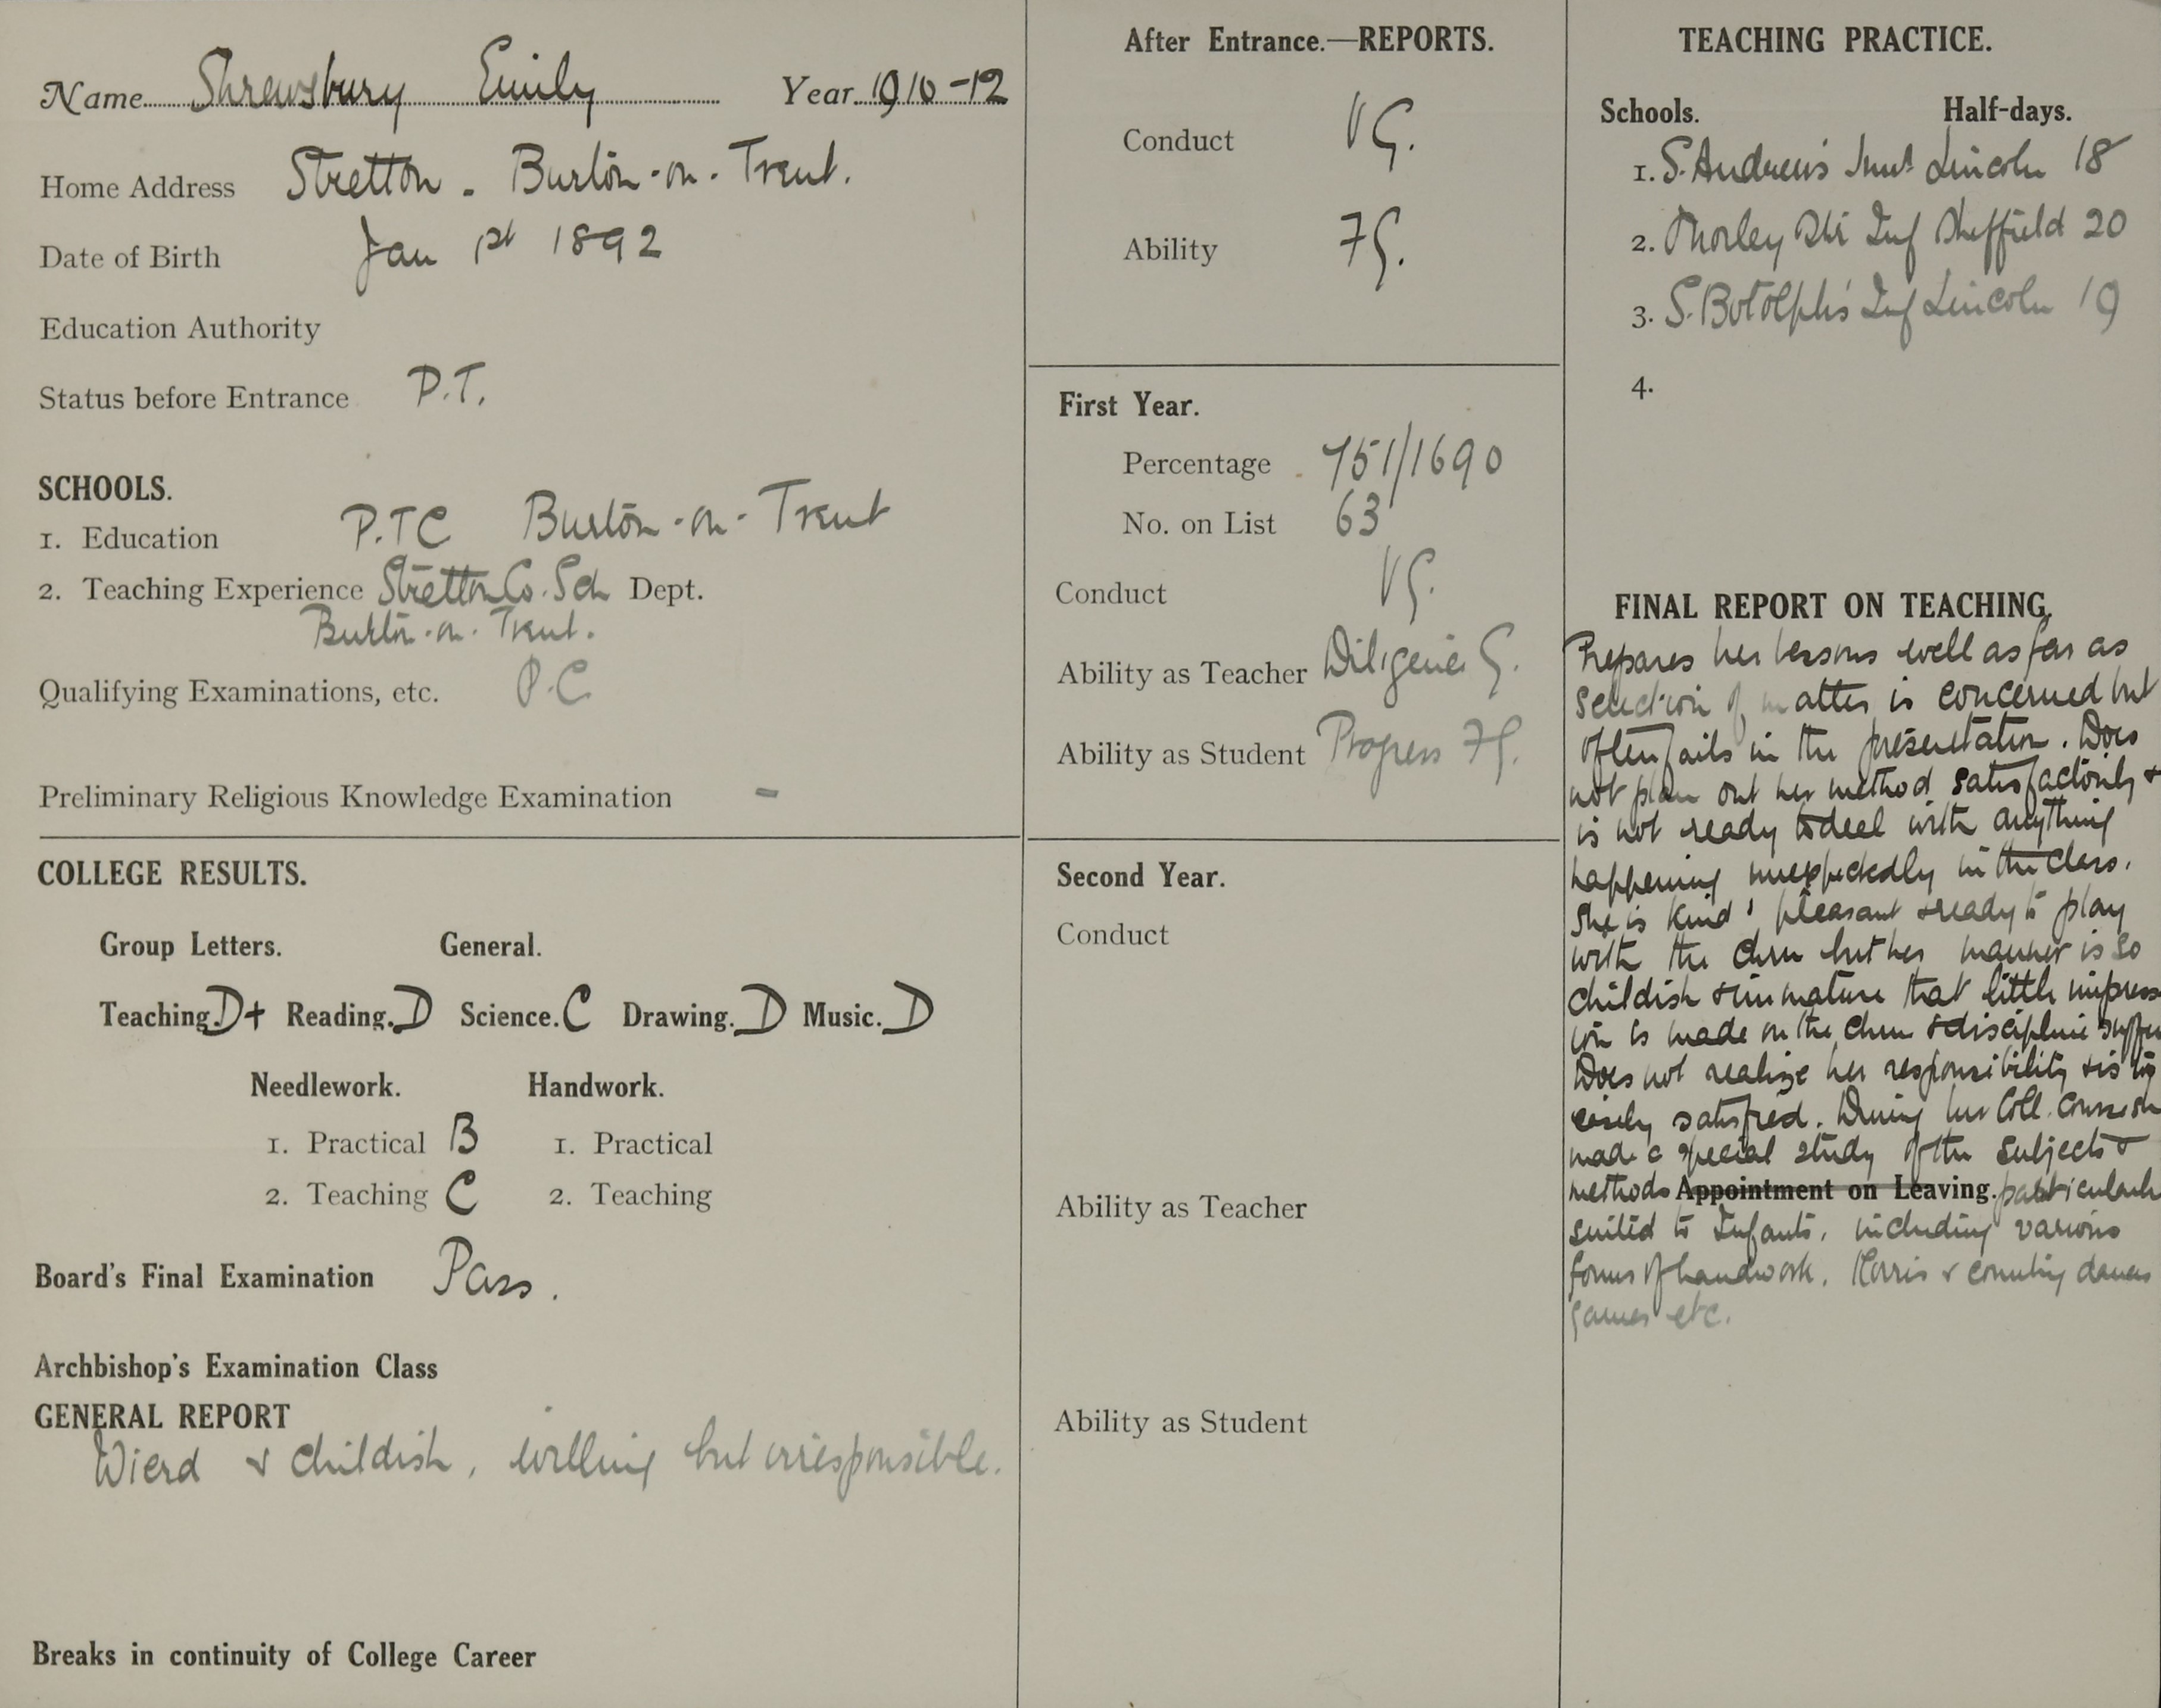 Name Shrewsbury Emily Year 1910-12
Home Address Stretton - Burton-on-Trent.
Date of Birth Jan 1st 1892
Education Authority
Status before Entrance P.T.
SCHOOLS.
1. Education P.T.C Burton-on-Trent
2. Teaching Experience Stretton Co. Sch Dept.
Burton-on-Trent.
Qualifying Examinations, etc. P.C.
Preliminary Religious Knowledge Examination -
COLLEGE RESULTS.
Group Letters. General.
Teaching. D+ Reading. D Science. C Drawing. D Music. D
Needlework. Handwork.
1. Practical B 1. Practical
2. Teaching C 2. Teaching
Board's Final Examination Pass.
Archbishop's Examination Class
GENERAL REPORT
Wierd & childish, willing but irresponsible.
Breaks in continuity of College Career
After Entrance.—REPORTS.
Conduct VG.
Ability FG.
First Year.
Percentage 751/1690
No. on List 63
Conduct VG.
Ability as Teacher Diligence G.
Ability as Student Progress FG.
Second Year.
Conduct
Ability as Teacher
Ability as Student
TEACHING PRACTICE.
Schools. Half-days.
1. S. Andrew's Lincoln 18
2. Inf Sheffield 20
3. S. Botolph's Inf Lincoln 19
4.
FINAL REPORT ON TEACHING.
Prepares her lessons well as far as
selection of matter is concerned but
often fails in the presentation. Does
not plan out her method satisfactorily &
is not ready to deal with anything
happening unexpectedly in the class.
She is kind, pleasant & ready to play
with the chn but her manner is so
childish & immature that little impress
ion is made on the chn & discipline suffers
Does not realize her responsibility & is too
easily satisfied. During her Coll. Course sh
made a special study of the subjects &
methods Appointment on Leaving. particularly
suited to Infants, including various
forms of handwork. Morris & country dances
games etc.